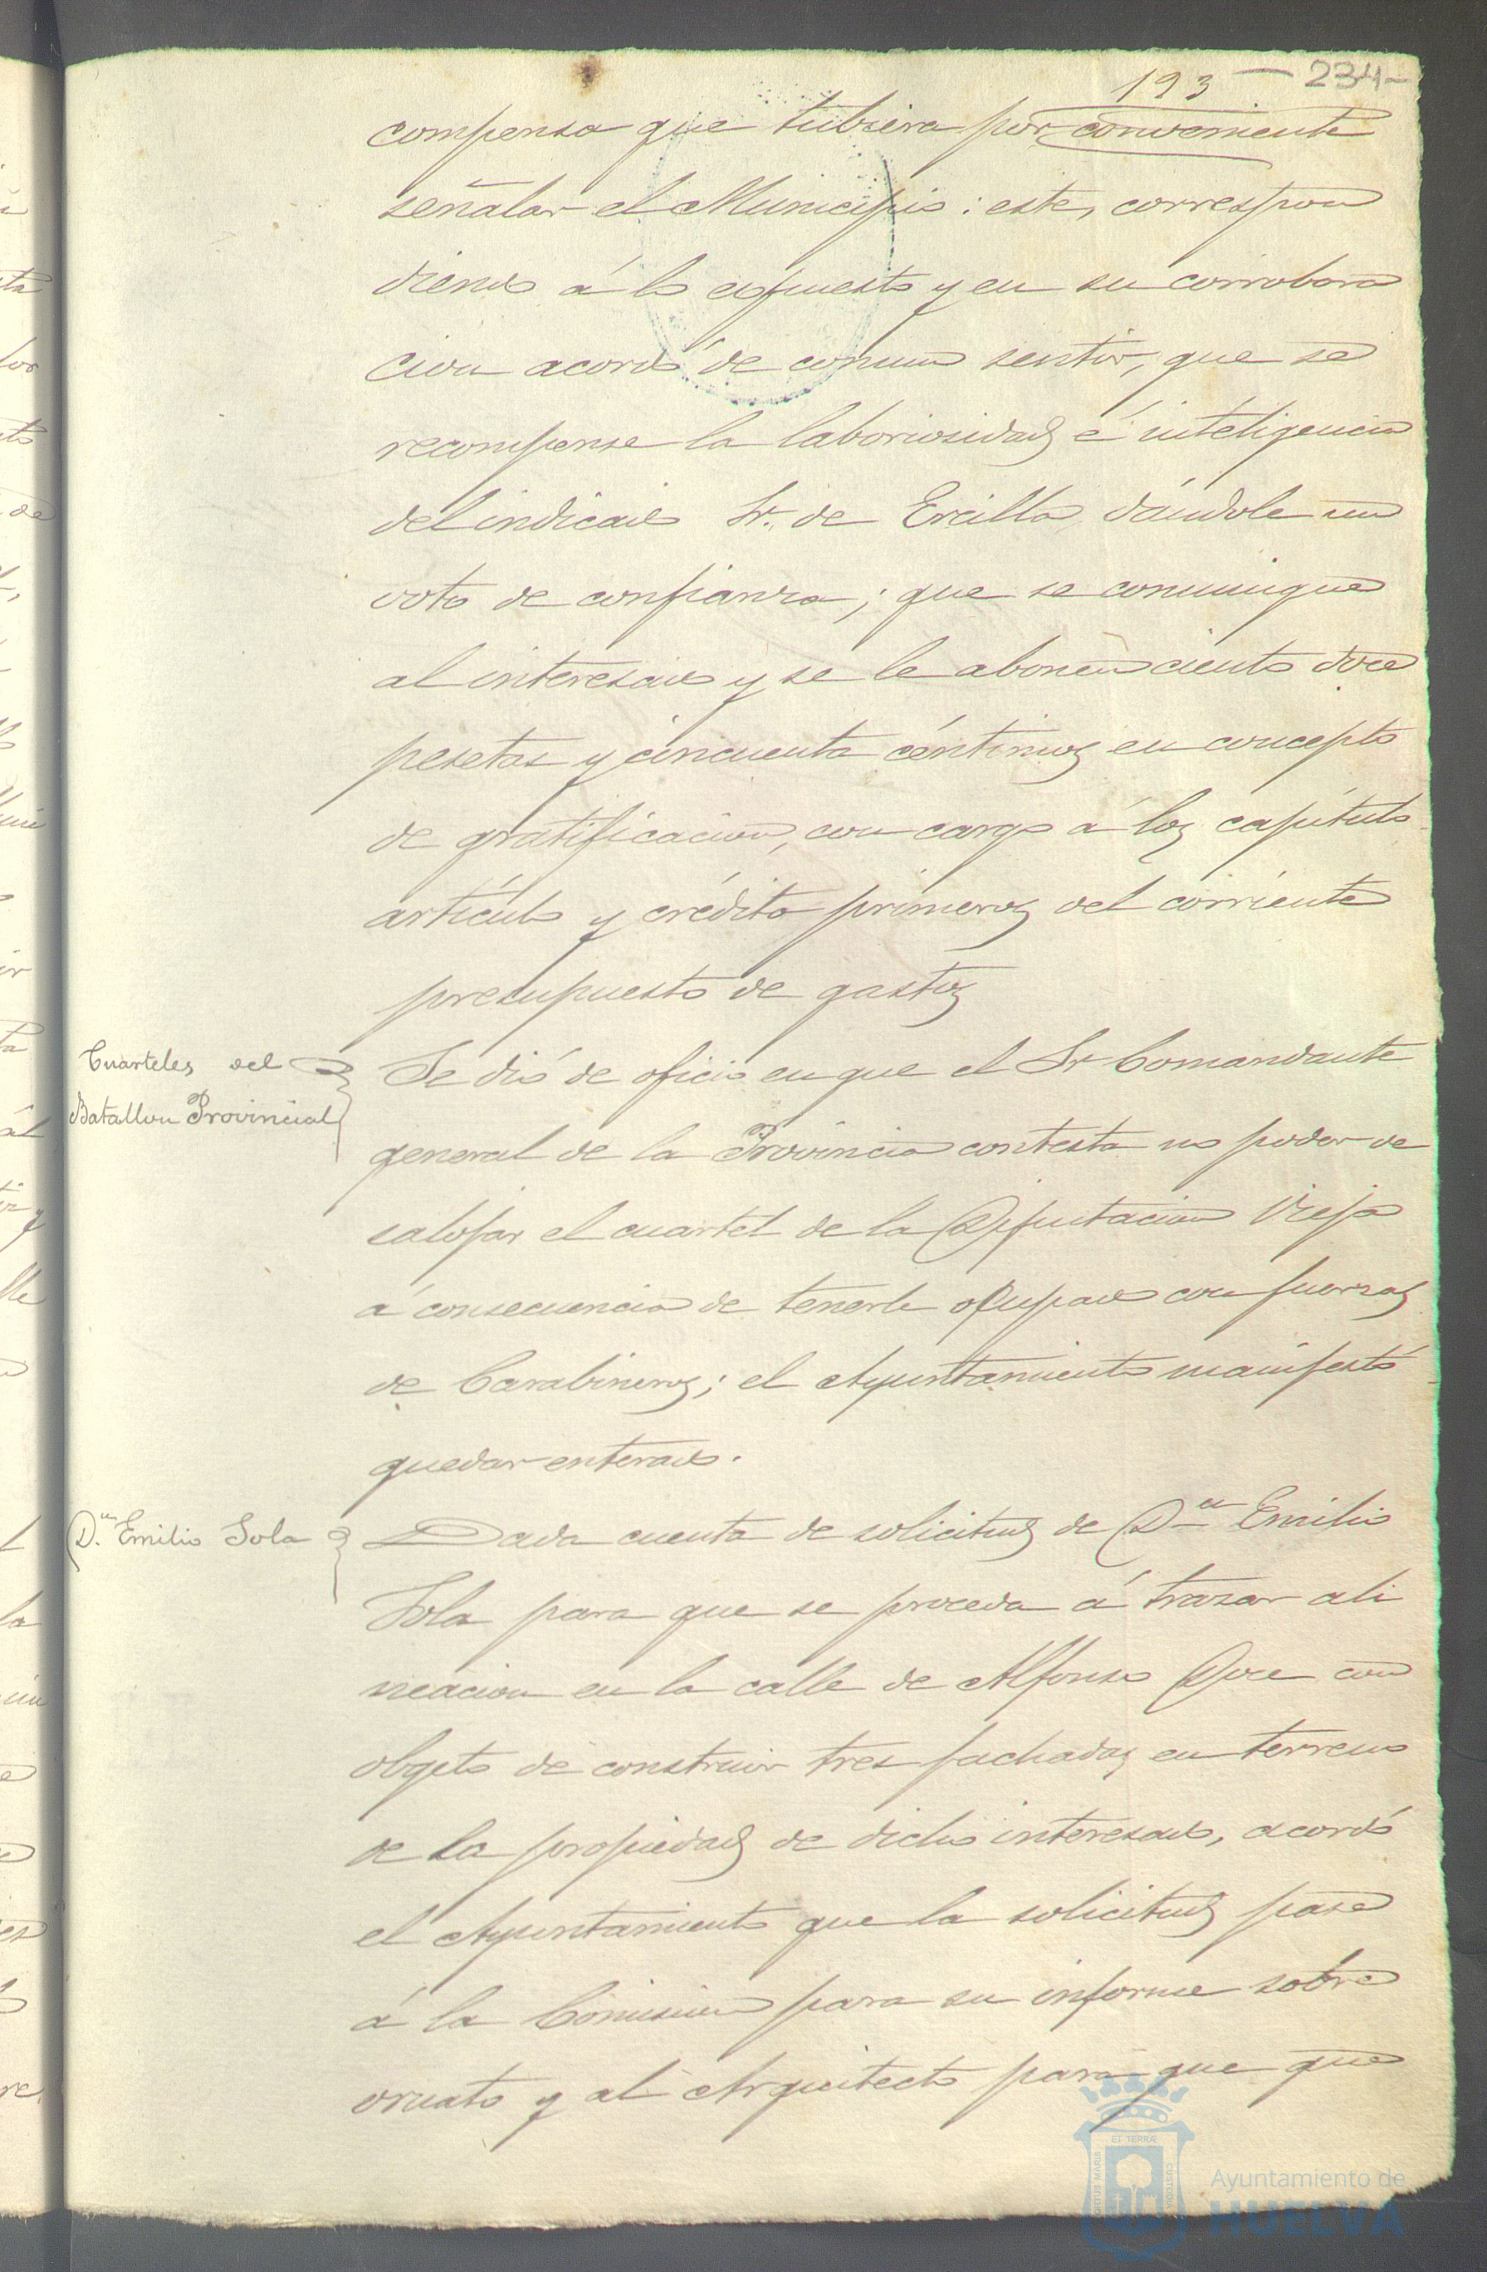 193 — 234 —
compensa que tubiera por conveniente
señalar el Municipio: este, correspon
diendo á lo expuesto y en su corrobora
cion acordó de comun sentir, que se
recompense la laboriosidad é inteligencia
del indicado Sr. de Ercilla, dándole un
voto de confianza; que se comunique
al interesado y se le abonen ciento doce
pesetas y cincuenta céntimos en concepto
de gratificacion, con cargo á los capítulo
artículo y crédito primeros del corriente
presupuesto de gastos
Cuarteles del
Batallon Provincial
Se dió de oficio en que el Sr Comandante
general de la Provincia contesta no poder de
salojar el cuartel de la Diputacion Vieja
á consecuencia de tenerle ocupado con fuerzas
de Carabineros; el Ayuntamiento manifestó
quedar enterado.
D.n Emilio Sola
Dada cuenta de solicitud de D.n Emilio
Sola para que se proceda á trazar ali
neacion en la calle de Alfonso Doce con
objeto de construir tres fachadas en terreno
de la propiedad de dicho interesado, acordó
el Ayuntamiento que la solicitud pase
á la Comision para su informe sobre
ornato y al Arquitecto para que que
PORTUS MARIS ET TERRÆ CUSTODIA
Ayuntamiento de
HUELVA